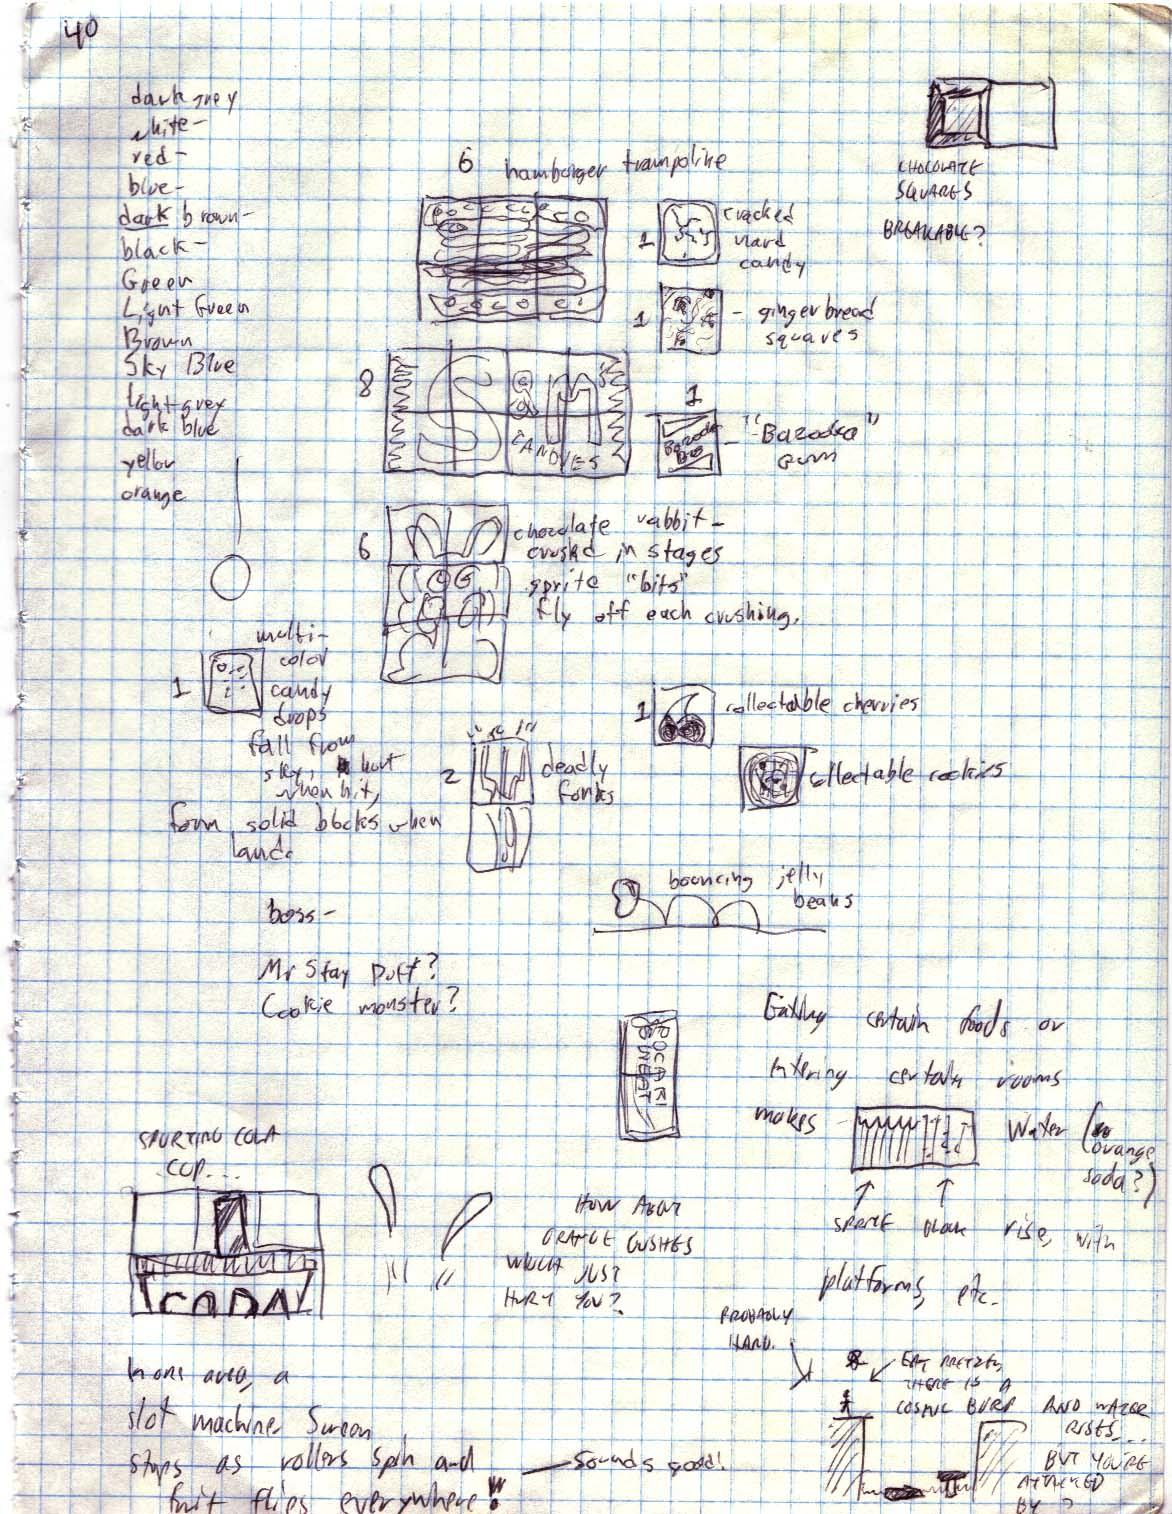 40
dark grey
white -
red -
blue -
dark brown -
black -
Green
Light Green
Brown
Sky Blue
light grey
dark blue
yellow
orange
6 hamburger trampoline
CHOCOLATE
SQUARES
BREAKABLE?
1 cracked
hard
candy
1 - gingerbread
squares
8
S & M
CANDIES
1
Bazooka
- "Bazooka"
Gum
6 chocolate rabbit -
crushed in stages
sprite "bits"
fly off each crushing.
1 multi-
color
candy
drops
fall from
sky, hurt
when hit,
form solid blocks when
land.
1 collectable cherries
collectable cookies
2 deadly
forks
bouncing jelly
beans
boss -
Mr Stay Puft?
Cookie monster?
POCARI
SWEAT
Eating certain foods or
entering certain rooms
makes water (or
orange
soda?)
SPRITE rise, with
platforms, etc.
SPURTING COLA
CUP...
HOW ABOUT
ORANGE GUSHES
WHICH JUST
HURT YOU?
PROBABLY
HARD.
EAT PRETZEL,
THERE IS A
COSMIC BURP AND WATER
RISES...
BUT YOU'RE
ATTACKED
BY ?
In one area, a
slot machine Screen
stops as rollers spin and
fruit flies everywhere!
— Sounds good!